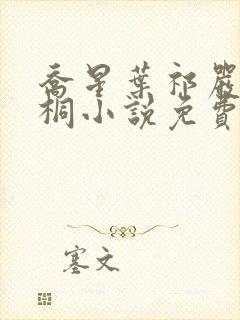 喬星葉祁嚴
桐小說免費
塞文